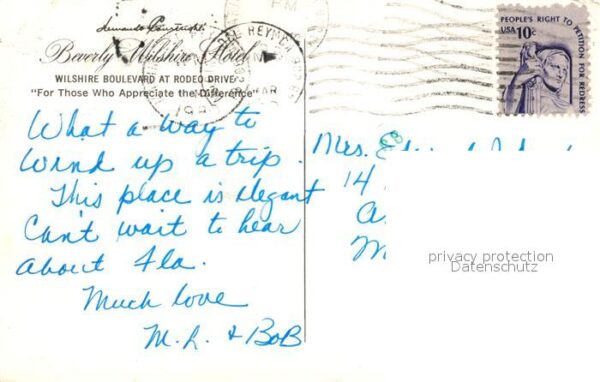 Beverly Wilshire Hotel
WILSHIRE BOULEVARD AT RODEO DRIVE
"For Those Who Appreciate the Difference"
PM
PEOPLE'S RIGHT TO PETITION FOR REDRESS
USA 10c
What a way to
Wind up a trip.
This place is elegant
Can't wait to hear
about Fla.
Much love
M. L. & BoB
Mrs.
14
privacy protection
Datenschutz